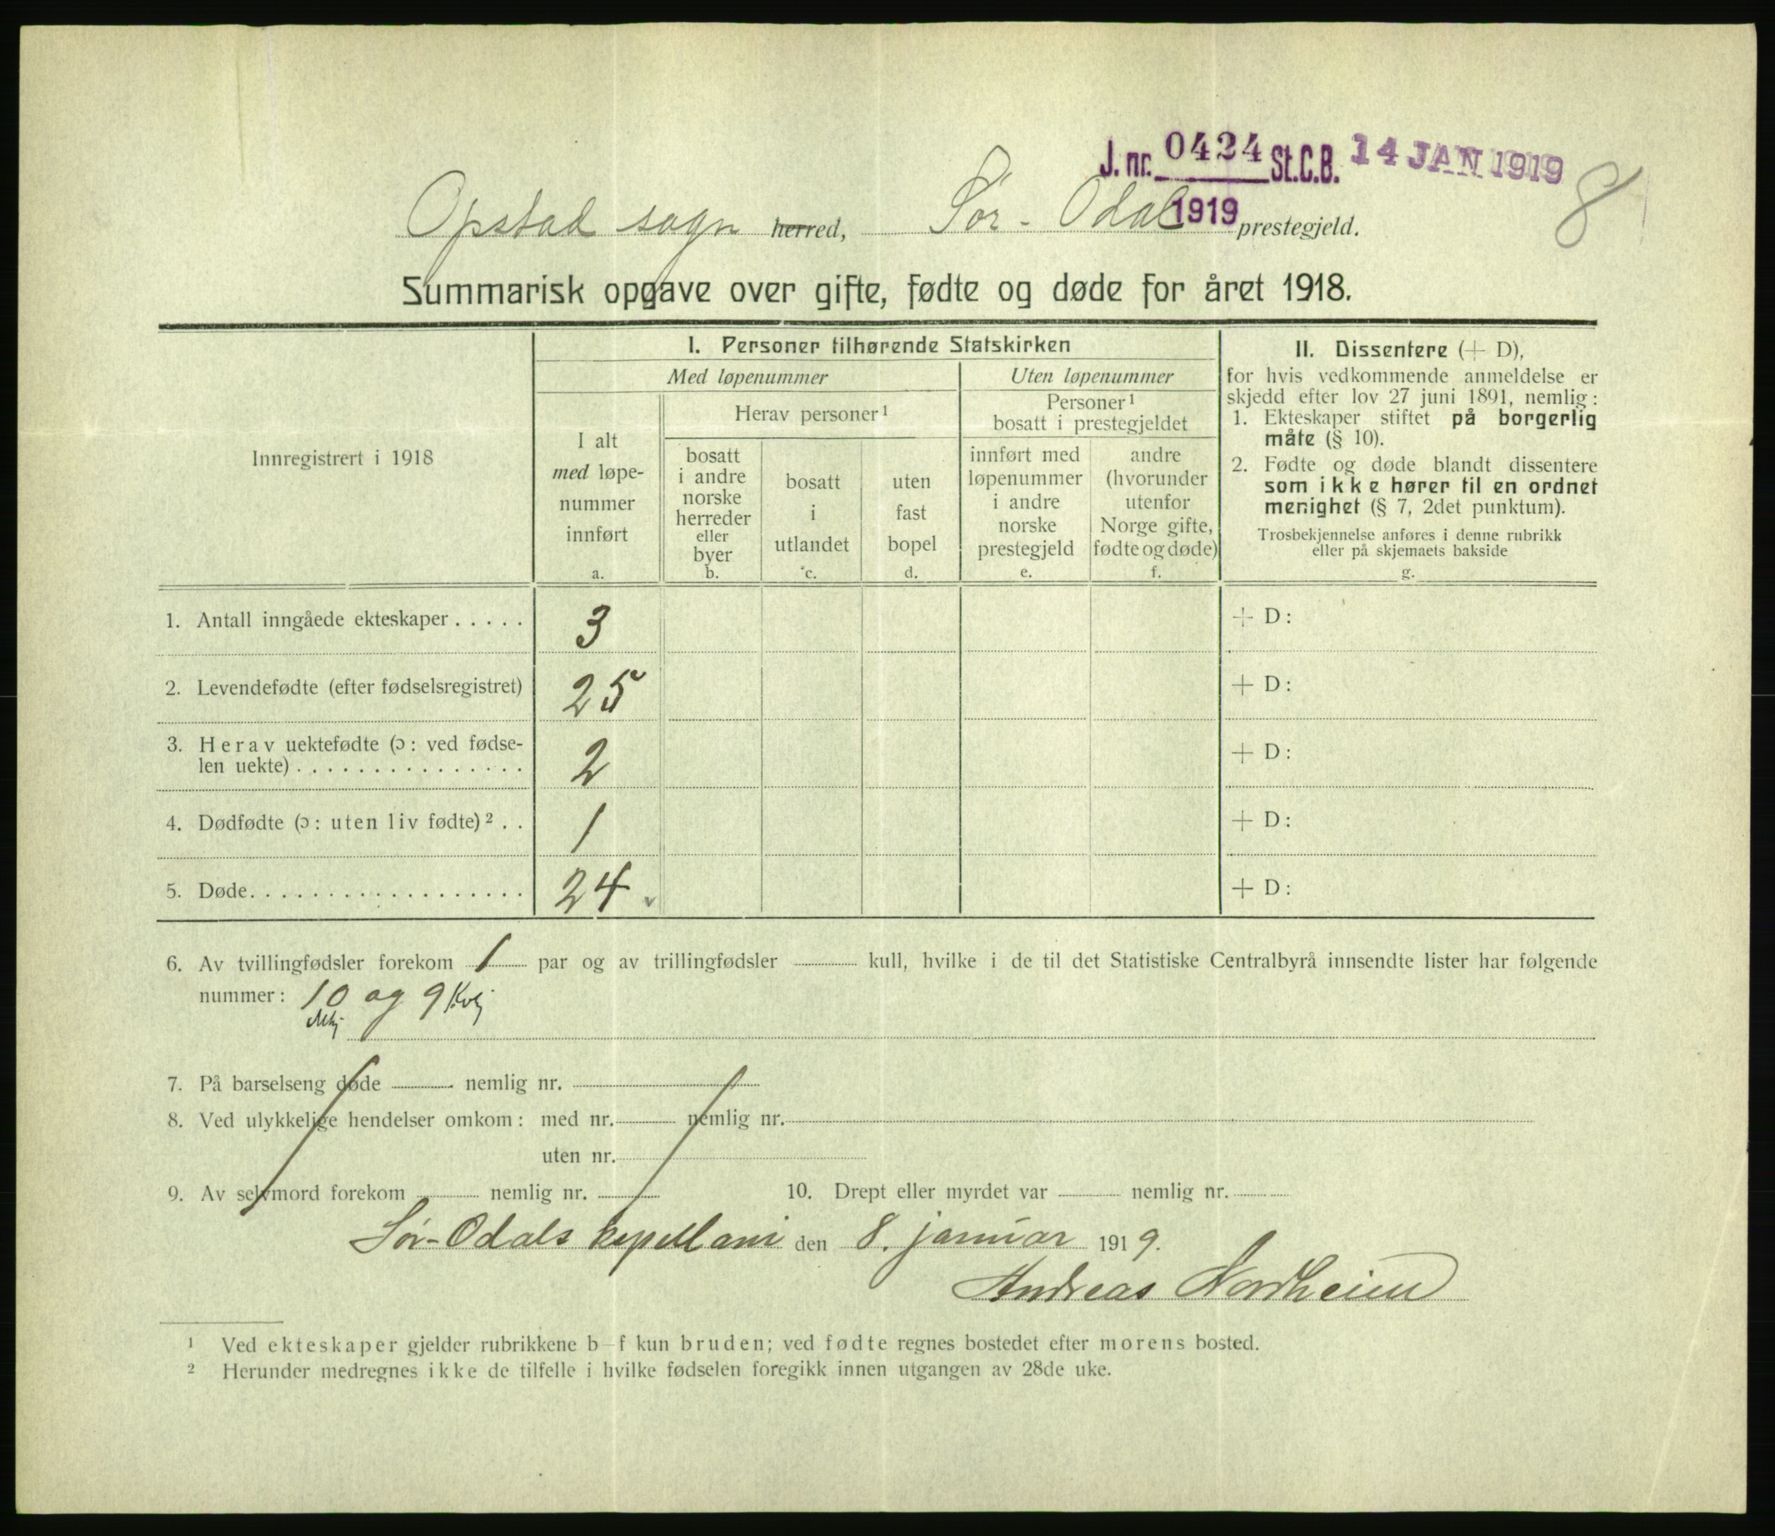 J. nr. 0424 St.C.B. 14 JAN 1919
8
1919
Opstad sogn herred, Sør-Odal prestegjeld.
Summarisk opgave over gifte, fødte og døde for året 1918.
Innregistrert i 1918
I. Personer tilhørende Statskirken
Med løpenummer
Uten løpenummer
I alt
med løpe-
nummer
innført
a.
Herav personer¹
bosatt
i andre
norske
herreder
eller
byer
b.
bosatt
i
utlandet
c.
uten
fast
bopel
d.
Personer¹
bosatt i prestegjeldet
innført med
løpenummer
i andre
norske
prestegjeld
e.
andre
(hvorunder
utenfor
Norge gifte,
fødte og døde)
f.
II. Dissentere (+ D),
for hvis vedkommende anmeldelse er
skjedd efter lov 27 juni 1891, nemlig:
1. Ekteskaper stiftet på borgerlig
måte (§ 10).
2. Fødte og døde blandt dissentere
som ikke hører til en ordnet
menighet (§ 7, 2det punktum).
Trosbekjennelse anføres i denne rubrikk
eller på skjemaets bakside
g.
1. Antall inngåede ekteskaper . . . . . 3 + D:
2. Levendefødte (efter fødselsregistret) 25 + D:
3. Herav uektefødte (ɔ: ved fødse-
len uekte) . . . . . . . . . . . . . . . 2 + D:
4. Dødfødte (ɔ: uten liv fødte)² . . 1 + D:
5. Døde. . . . . . . . . . . . . . . . . . 24 + D:
6. Av tvillingfødsler forekom 1 par og av trillingfødsler kull, hvilke i de til det Statistiske Centralbyrå innsendte lister har følgende
nummer: 10 og 9 Kvkj
7. På barselseng døde nemlig nr.
8. Ved ulykkelige hendelser omkom: med nr. nemlig nr.
uten nr.
9. Av selvmord forekom nemlig nr. 10. Drept eller myrdet var nemlig nr.
Sør-Odals kapellani den 8. januar 1919.
Andreas Nordheim
¹ Ved ekteskaper gjelder rubrikkene b–f kun bruden; ved fødte regnes bostedet efter morens bosted.
² Herunder medregnes ikke de tilfelle i hvilke fødselen foregikk innen utgangen av 28de uke.